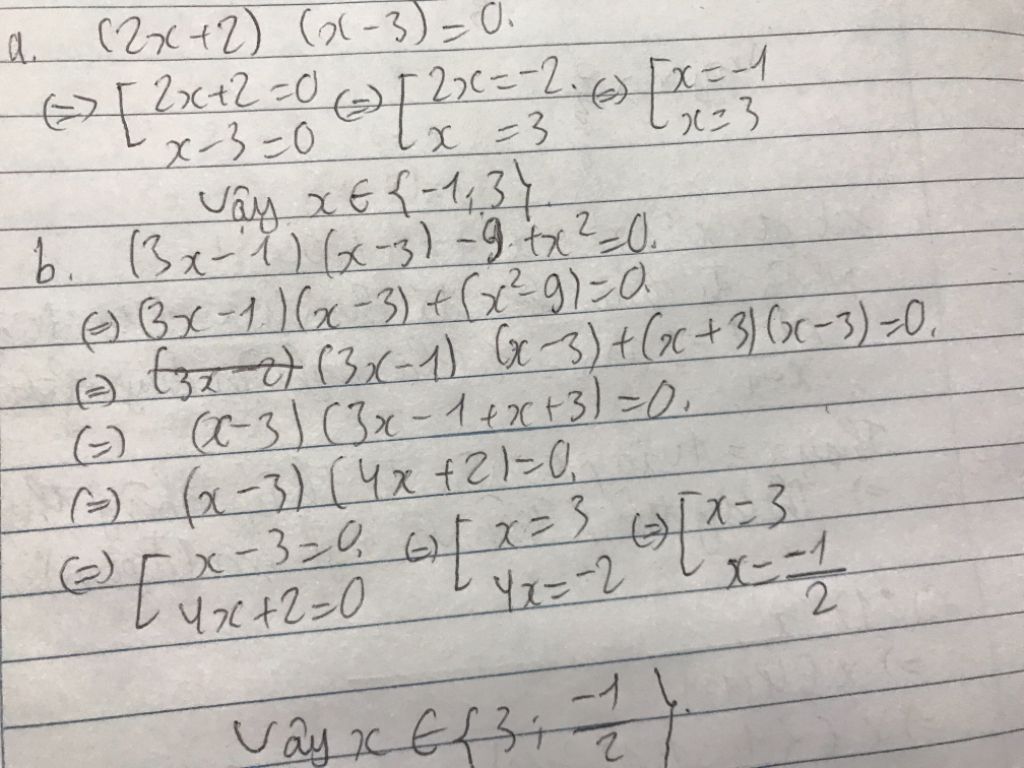 a. (2x+2) (x-3)=0.
(=) [2x+2=0 (=) [2x=-2. (=) [x=-1
x-3=0 x =3 x=3
Vậy x ∈ {-1;3}.
b. (3x-1)(x-3) -9 +x²=0.
(=) (3x-1)(x-3) + (x²-9)=0.
(=) (3x-1) (x-3)+(x+3)(x-3)=0.
(=) (x-3)(3x-1+x+3)=0.
(=) (x-3)(4x+2)=0.
(=) [x-3=0. (=) [x=3 (=) [x=3
4x+2=0 4x=-2 x=-1/2
Vậy x ∈ {3; -1/2}.